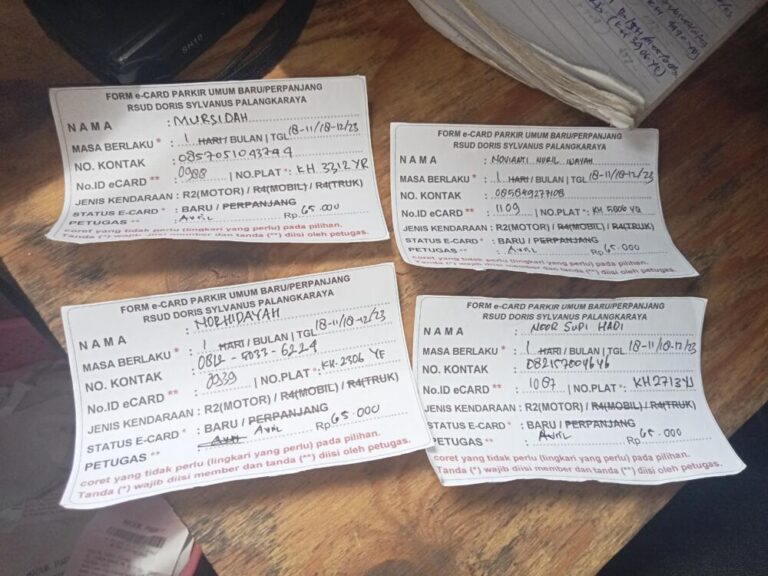 SH10
FORM e-CARD PARKIR UMUM BARU/PERPANJANG
RSUD DORIS SYLVANUS PALANGKARAYA
NAMA : MURSIDAH
MASA BERLAKU * : 1 HARI / BULAN | TGL 18-11/18-12/23
NO. KONTAK : 0857051043744
No.ID eCARD ** : 0988 | NO.PLAT * : KH 3312 YR
JENIS KENDARAAN : R2(MOTOR) / R4(MOBIL) / R4(TRUK)
STATUS E-CARD * : BARU / PERPANJANG
PETUGAS ** : Avril Rp 65.000
coret yang tidak perlu (lingkari yang perlu) pada pilihan.
Tanda (*) wajib diisi member dan tanda (**) diisi oleh petugas.
FORM e-CARD PARKIR UMUM BARU/PERPANJANG
RSUD DORIS SYLVANUS PALANGKARAYA
NAMA : NOVIANTI NURIL
MASA BERLAKU * : 1 HARI / BULAN | TGL 18-11/18-12/23
NO. KONTAK :
No.ID eCARD ** : 1109 | NO.PLAT * : KH 5806 YQ
JENIS KENDARAAN : R2(MOTOR) / R4(MOBIL) / R4(TRUK)
STATUS E-CARD * : BARU / PERPANJANG
PETUGAS ** : Avril Rp 65.000
coret yang tidak perlu (lingkari yang perlu) pada pilihan.
Tanda (*) wajib diisi member dan tanda (**) diisi oleh petugas.
FORM e-CARD PARKIR UMUM BARU/PERPANJANG
RSUD DORIS SYLVANUS PALANGKARAYA
NAMA : NORHIDAYAH
MASA BERLAKU * : 1 HARI / BULAN | TGL 18-11/18-12/23
NO. KONTAK : 0812-5033-6224
No.ID eCARD ** : 0939 | NO.PLAT * : KH 2306 YF
JENIS KENDARAAN : R2(MOTOR) / R4(MOBIL) / R4(TRUK)
STATUS E-CARD * : BARU / PERPANJANG
PETUGAS ** : Avril Rp 65.000
coret yang tidak perlu (lingkari yang perlu) pada pilihan.
Tanda (*) wajib diisi member dan tanda (**) diisi oleh petugas.
FORM e-CARD PARKIR UMUM BARU/PERPANJANG
RSUD DORIS SYLVANUS PALANGKARAYA
NAMA : NOOR SUPI HADI
MASA BERLAKU * : 1 HARI / BULAN | TGL 18-11/18-12/23
NO. KONTAK : 082157004646
No.ID eCARD ** : 1087 | NO.PLAT * : KH 2713 YJ
JENIS KENDARAAN : R2(MOTOR) / R4(MOBIL) / R4(TRUK)
STATUS E-CARD * : BARU / PERPANJANG
PETUGAS ** : Avril Rp 65.000
coret yang tidak perlu (lingkari yang perlu) pada pilihan.
Tanda (*) wajib diisi member dan tanda (**) diisi oleh petugas.